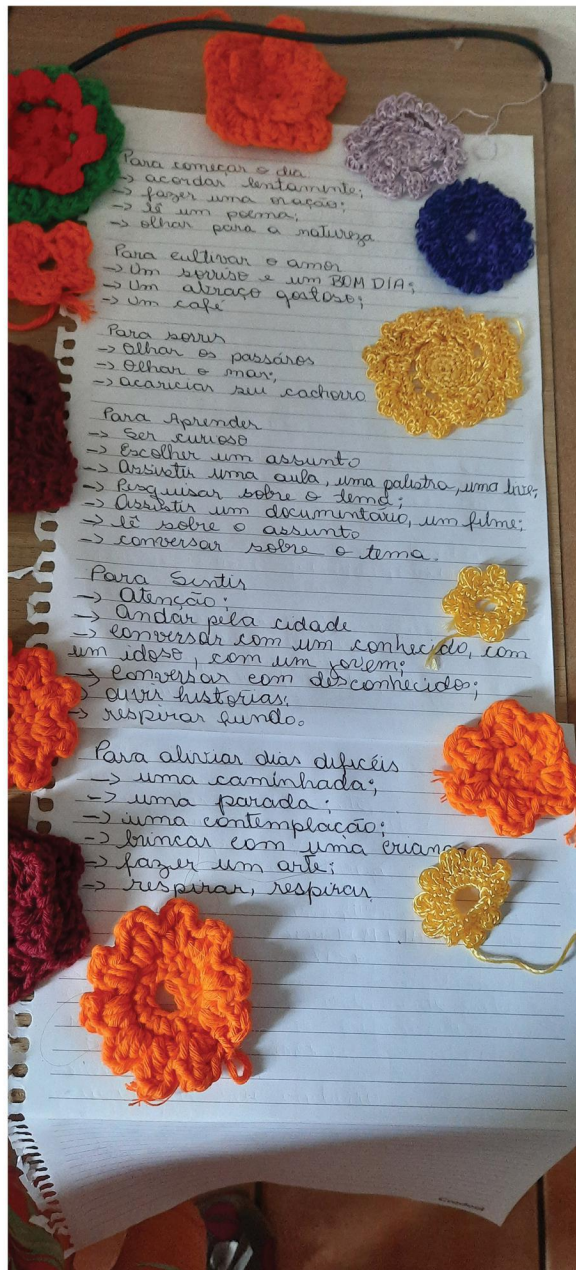 Para começar o dia
→ acordar lentamente;
→ fazer uma oração;
→ lê um poema;
→ olhar para a natureza
Para cultivar o amor
→ Um sorriso e um BOM DIA;
→ Um abraço gostoso;
→ Um café
Para sorrir
→ Olhar os passáros
→ Olhar o mar;
→ acariciar seu cachorro
Para Aprender
→ Ser curioso
→ Escolher um assunto
→ Assistir uma aula, uma palestra, uma live;
→ Pesquisar sobre o tema;
→ Assistir um documentário, um filme;
→ lê sobre o assunto
→ conversar sobre o tema.
Para Sentir
→ Atenção;
→ Andar pela cidade
→ Conversar com um conhecido, com
um idoso, com um jovem;
→ Conversar com desconhecidos;
→ ouvir historias.
→ respirar fundo.
Para aliviar dias dificéis
→ uma caminhada;
→ uma parada;
→ uma contemplação;
→ brincar com uma criança
→ fazer um arte;
→ respirar, respirar